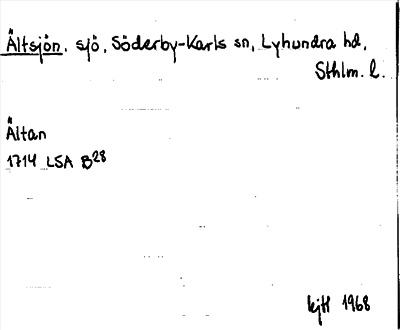 Ältsjön, sjö, Söderby-Karls sn, Lyhundra hd,
Sthlm. l.
Ältan
1714 LSA B28
kjtl 1968